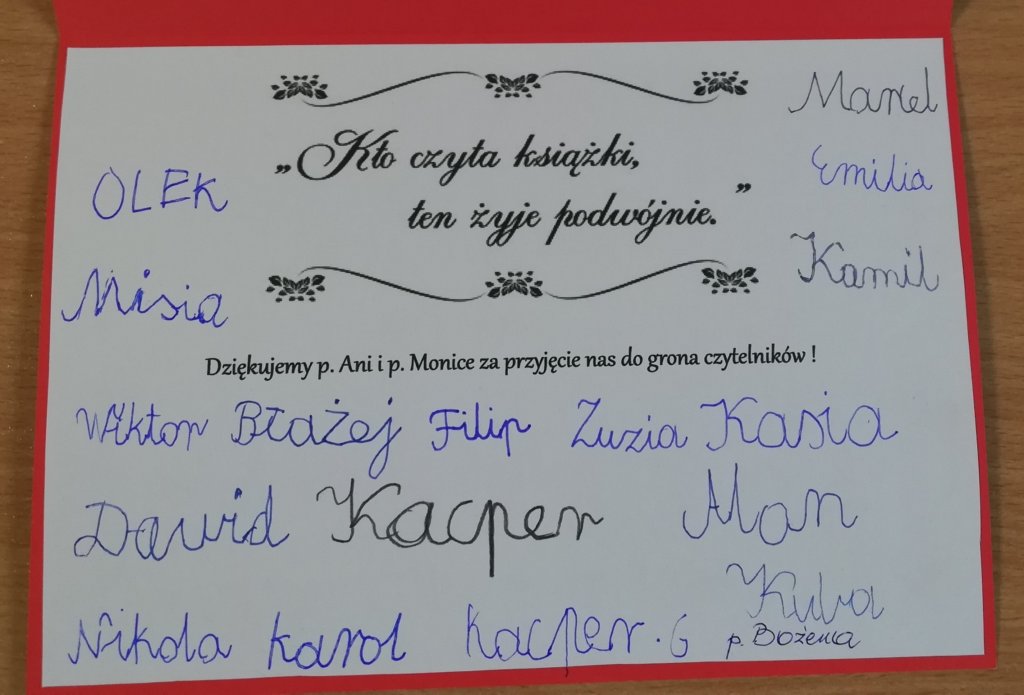 Marcel
„Kto czyta książki,
Emilia
OLEK
ten żyje podwójnie.”
Kamil
Misia
Dziękujemy p. Ani i p. Monice za przyjęcie nas do grona czytelników !
Wiktor Błażej Filip Zuzia Kasia
Dawid Kacper Alan
Kuba
Nikola Karol Kacper. G p. Bożena